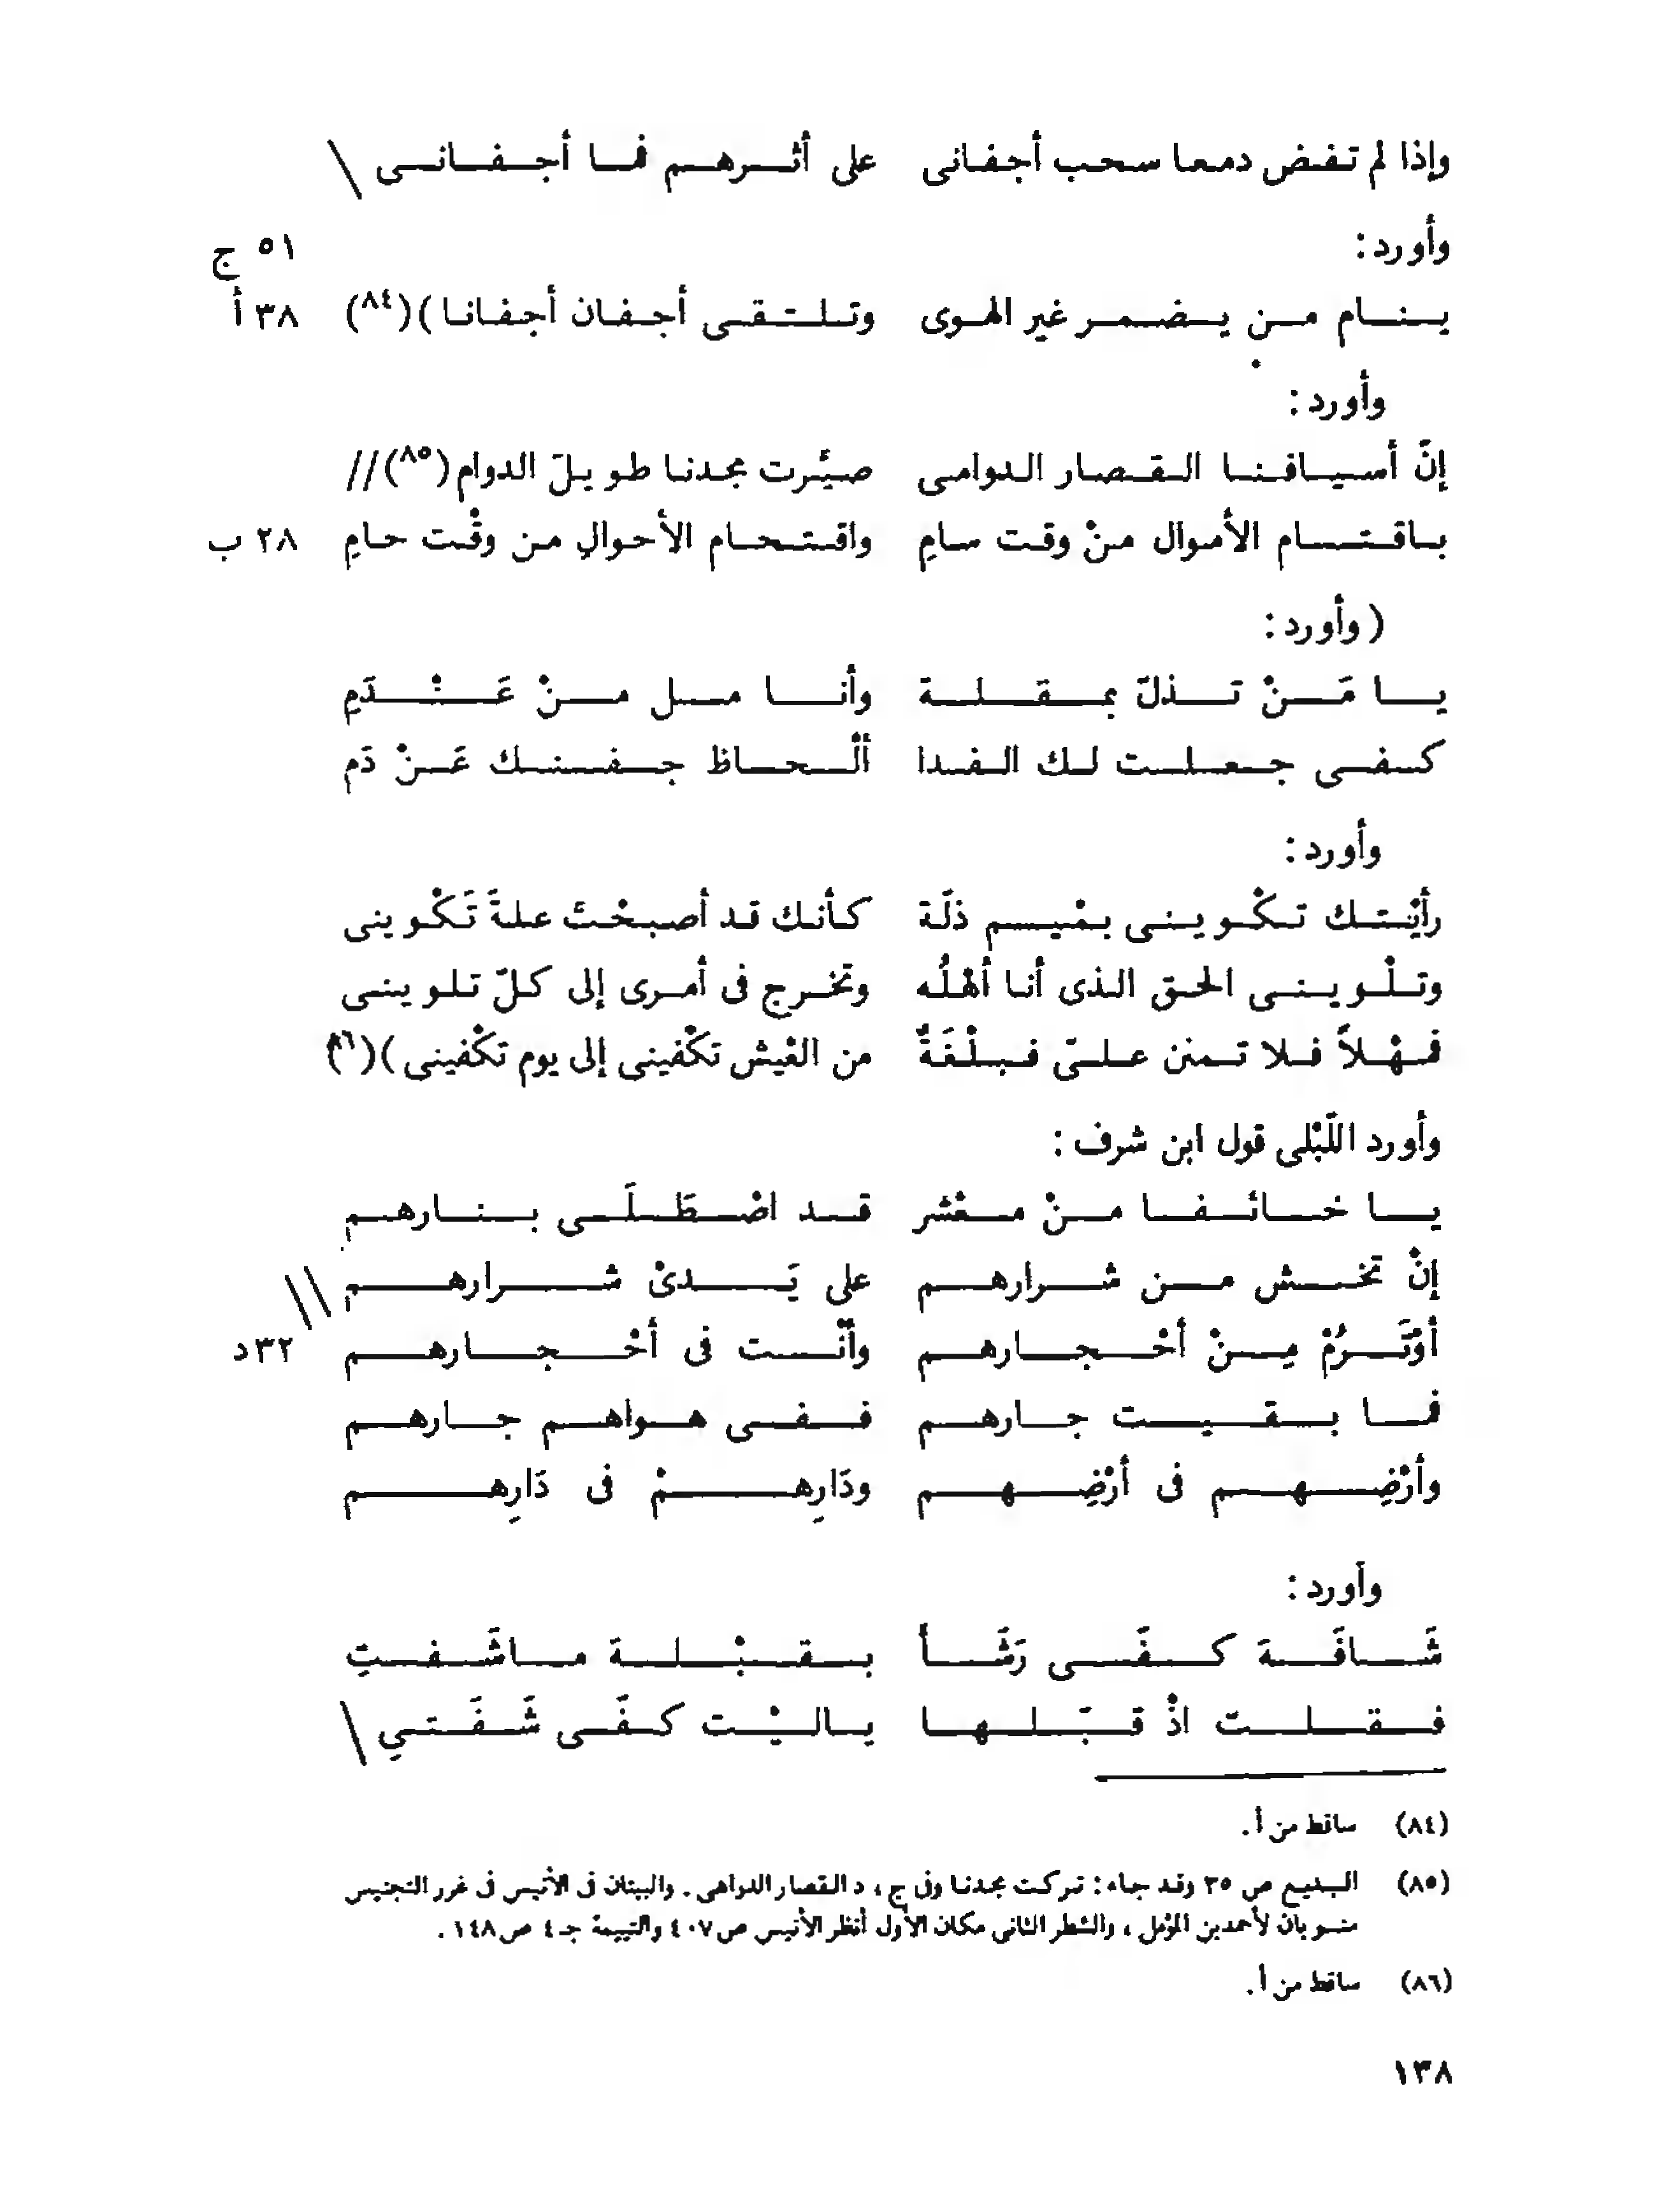 وإذا لم تفض دمعا سحب أجفانى على أثرهم فما أجفانى \
وأورد:
٥١ ج
ينام من يضمر غير الهوى وتلتقى أجفان أجفانا)(٨٤) ٣٨ أ
وأورد:
إنّ أسيافنا القصار الدوامى صيّرت مجدنا طويلَ الدوام(٨٥)//
باقتسام الأموال منْ وقت سامِ واقتحام الأحوالِ من وقْت حامِ ٢٨ ب
(وأورد:
يا مَنْ تذلّ بمقلة وأنامل منْ عَنْدَمِ
كفى جعلت لك الفدا ألْحاظ جفنك عَنْ دَم
وأورد:
رأيْتك تكْوينى بمْيسم ذلّة كأنك قد أصبحْتَ علةَ تَكْوينى
وتلْوينى الحق الذى أنا أهْلُه وتخرج فى أمرى إلى كلّ تلوينى
فمهْلاً فلا تمنن علىّ فبلْغَةٌ من العْيش تكْفينى إلى يوم تكْفينى)(٨٦)
وأورد اللَّبْلى قول ابن شرف:
يا خائفا منْ معْشر قد اصْطَلَى بنارهم
إنْ تخش من شرارهم على يَدىْ شرارهم //
أوْتَرُمْ مِنْ أحْجارهم وأنْت فى أحْجارهم ٣٢د
فما بقيت جارهم ففى هواهم جارهم
وأرْضِهم فى أرْضِهم ودَارِهمْ فى دَارِهم
وأورد:
شَافَهَ كفّى رَشَأ بقبْلة ماشَفتِ
فقلت اذْ قبّلها ياليْت كفّى شَفَتي \
(٨٤) ساقط من أ.
(٨٥) البديع ص ٣٥ وقد جاء: تركت مجدنا وفى ج، د القصار الدواهى. والبيتان فى الأنيس فى غرر التجنيس
منسوبان لأحمد بن المؤمل، والشطر الثانى مكان الأول أنظر الأنيس ص ٤٠٧ والتيمة جـ ٤ ص ١٤٨.
(٨٦) ساقط من أ.
١٣٨